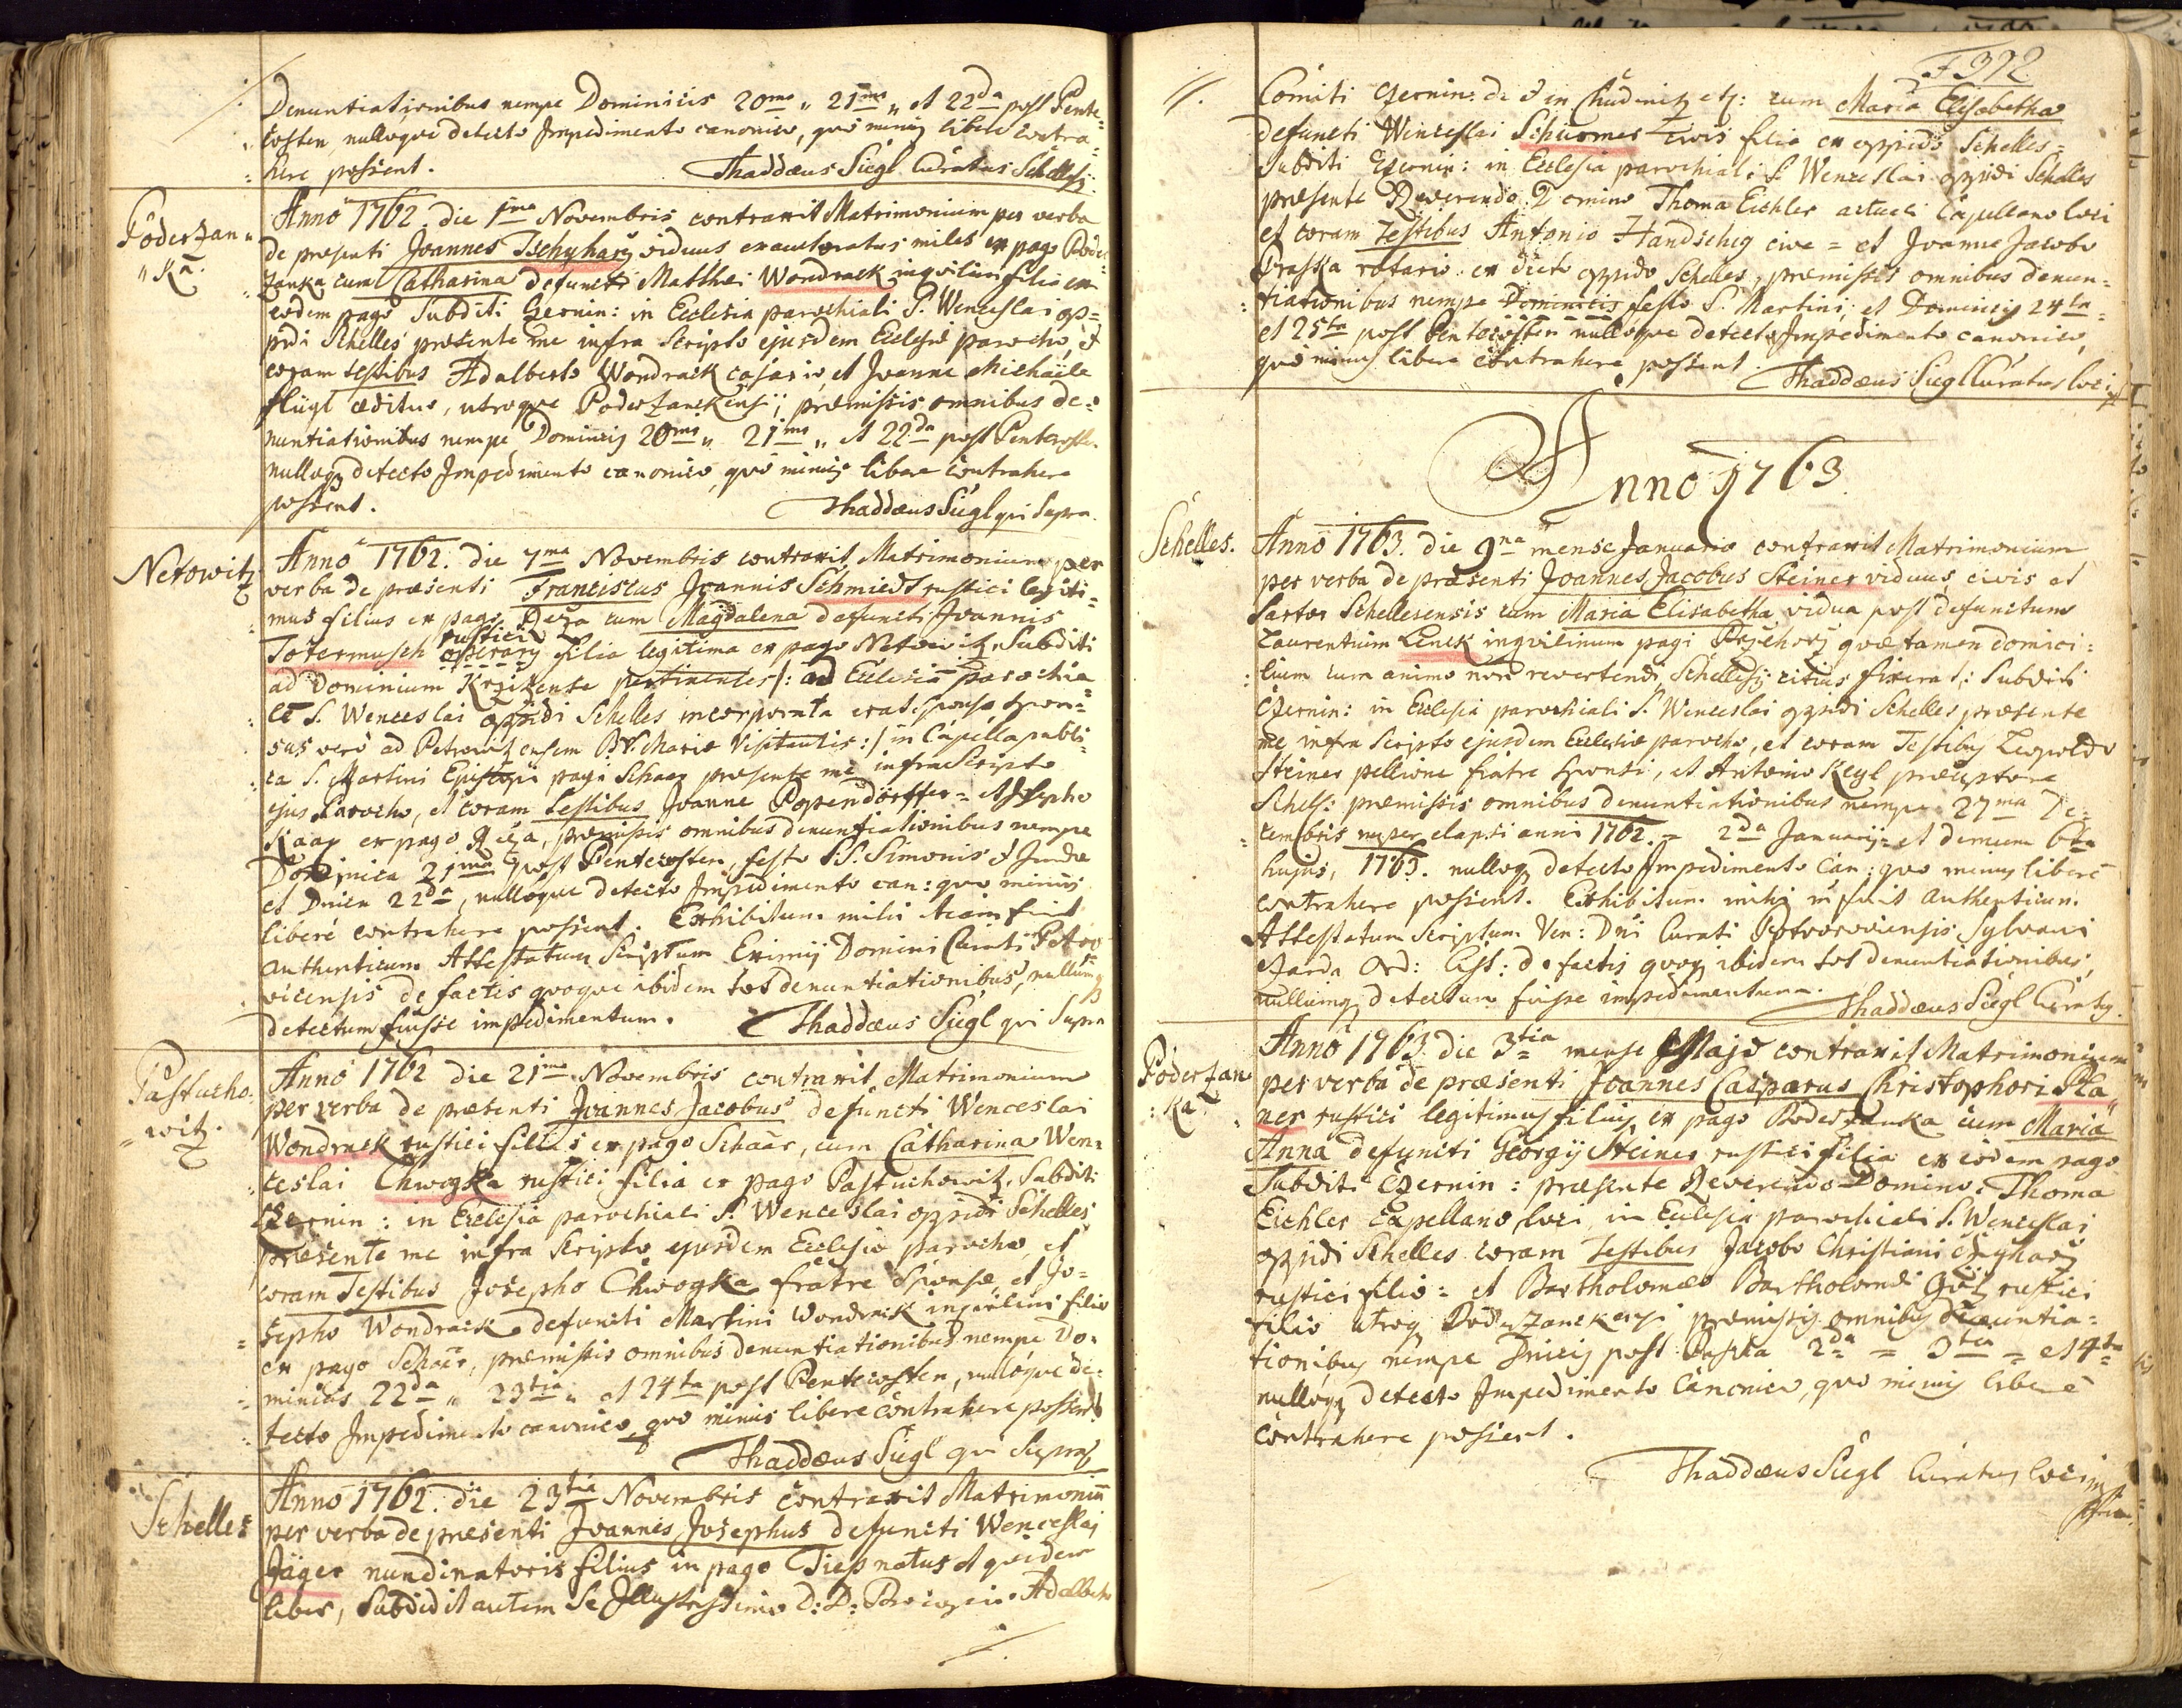 Denuntiationibus nempe Dominicis 20ma „ 21ma „ et 22da post Pente=
costen, nulloque detecto Impedimento canonico, quò minus libere contra=
here possent. Thaddæus Siegl Curatus Schelles:
Poderzan„
„ka.
Anno 1762. die 1ma Novembris contraxit Matrimonium per verba
de præsenti Joannes Tschyharz viduus exauctoratus miles ex pago Poder=
zanka cum Catharina defuncti Matthæi Wondrack inquilini filia ex
eodem pago Subditi Czernin: in Ecclesia parochiali S. Wenceslai op=
pidi Schelles præsente me infra Scripto ejusdem Ecclesiæ parocho, et
coram testibus Adalberto Wondrack casario, et Joanne Michaële
flügl ædituo, utroque Poderzanckensi; præmissis omnibus de=
nuntiationibus nempe Dominicis 20ma „ 21ma „ et 22da post Pentecosten
nulloq detecto Impedimento canonico, quò minus libere contrahere
possent. Thaddæus Siegl qui Supra.
Netowitz
Anno 1762. die 7ma Novembris contraxit Matrimonium per
verba de præsenti Franciscus Joannis Schmiedt rustici legiti=
mus filius ex pago cum Magdalena defuncti Joannis
rustici
Totermusch operary filia legitima ex pago Netowitz Subditi
ad Dominium Krzizense pertinentes /: ad Ecclesiā parochia=
lē S. Wenceslai oppidi Schelles incorporata erat Sponsa, Spon=
sus verò ad Petrowitzensem B.V. Mariæ Visitantis :/ in Capella publi=
ca S. Martini Episcopi pagi Schaar præsente me infra Scripto
ejus Parocho, et coram testibus Joanne Popendörffer = et Josepho
Kaap ex pago præmissis omnibus denuntiationibus nempe
Dominica 21ma post Pentecosten, festo SS. Simonis et Judæ
et Dnica 22da, nulloque detecto Impedimento can: quo minus
liberè contrahere possent. Exhibitum mihi etiam fuit
authenticum Attestatum Scriptum Eximij Domini Curati Petro=
vicensis de factis quoque ibidem tot denuntiationibus, nullumq
detectum fuisse impedimentum. Thaddæus Siegl qui Supra
Pastucho=
„witz.
Anno 1762 die 21ma Novembris contraxit Matrimonium
per verba de præsenti Joannes Jacobus defuncti Wenceslai
Wondrack rustici filius ex pago Schaar, cum Catharina Wen=
ceslai Chwogka rustici filia ex pago Pastuchowitz, Subditi
Czernin: in Ecclesia parochiali S. Wenceslai oppidi Schelles
præsente me infra Scripto ejusdem Ecclesiæ parocho, et
coram Testibus Josepho Chwogka fratre Sponsæ, et Jo=
sepho Wondrack defuncti Martini Wondrack inquilini filio
ex pago Schaar, præmissis omnibus denuntiationibus nempe Do=
minicis 22da „ 23tia „ et 24ta post Pentecosten, nulloque de=
tecto Impedimento canonico, quo minus libere contrahere possent
Thaddæus Siegl qui Supra
Schelles
Anno 1762. die 23tia Novembris contraxit Matrimoniū
per verba de præsenti Joannes Josephus defuncti Wenceslai
Jäger nundinatoris filius in pago Tiess natus et quidem
liber, Subdidit autem Se Illustrissimo D: D: Procopio Adalberto
F 392
Comiti Czernin: de et in Chudenitz etz: cum Maria Elisabetha
defuncti Wenceslai Schürmer civis filia ex oppido Schelles=
Subditi Czernin: in Ecclesia parochiali S. Wenceslai oppidi Schelles
præsente Reverendo Domino Thoma Eichler actuali Capellano loci
et coram Testibus Antonio Handscheg cive = et Joanne Jacobo
Prasska rotario ex dicto oppido Schelles, præmissis omnibus denun=
tiationibus nempe Dominicis festo S. Martini, et Dominicis 24ta =
et 25ta post Pentecosten nulloque detecto Impedimento canonico,
quò minus libere contrahere possent. Thaddæus Siegl Curatus loci
Anno 1763
Schelles.
Anno 1763. die 9na mense Januario contraxit Matrimonium
per verba de præsenti Joannes Jacobus Steiner viduus civis et
Sartor Schellesensis cum Maria Elisabetha vidua post defunctum
Laurentium Lenck inquilinum pagi quæ tamen domici=
lium cum animo non revertendi, Schellesij citius fixerat: Subditi
Czernin: in Ecclesia parochiali S. Wenceslai oppidi Schelles præsente
me infra Scripto ejusdem Ecclesiæ parocho, et coram Testibus Leopoldo
Steiner pellione fratre Sponsi, et Antonio Kegl præceptore
Schels: præmissis omnibus denuntiationibus nempe 27ma De=
cembris nuper elapsi anni 1762. = 2da Januarij = et demum 6ta
hujus, 1763. nulloq detecto Impedimento Can: quo minus liberè
contrahere possent. Exhibitum mihi fuit authenticum
Attestatum Scriptum Ven: Dni Curati Sylvani
Czarda Ord: Cist: de factis quoq ibidem tot denuntiationibus,
nullumq detectum fuisse impedimentum. Thaddæus Siegl Curatus.
Poderzan
:ka.
Anno 1763. die 3tia mense Majo contraxit Matrimonium
per verba de præsenti Joannes Casparus Christophori Pla=
ner rustici legitimus filius ex pago Poderzanka cum Maria
Anna defuncti Georgij Steiner rustici filia ex eodem pago
Subditi Czernin: præsente Reverendo Domino Thoma
Eichler Capellano loci, in Ecclesia parochiali S. Wenceslai
oppidi Schelles coram testibus Jacobo Christiani Czyharz
rustici filio = et Bartholomæo Bartholomæi Götz rustici
filio utroq Poderzanckensi præmissis omnibus denuntia=
tionibus nempe Dnicis post Pascha 2da = 3tia = et 4ta
nulloq detecto Impedimento Canonico, quo minus liberè
contrahere possent.
Thaddæus Siegl Curatus loci